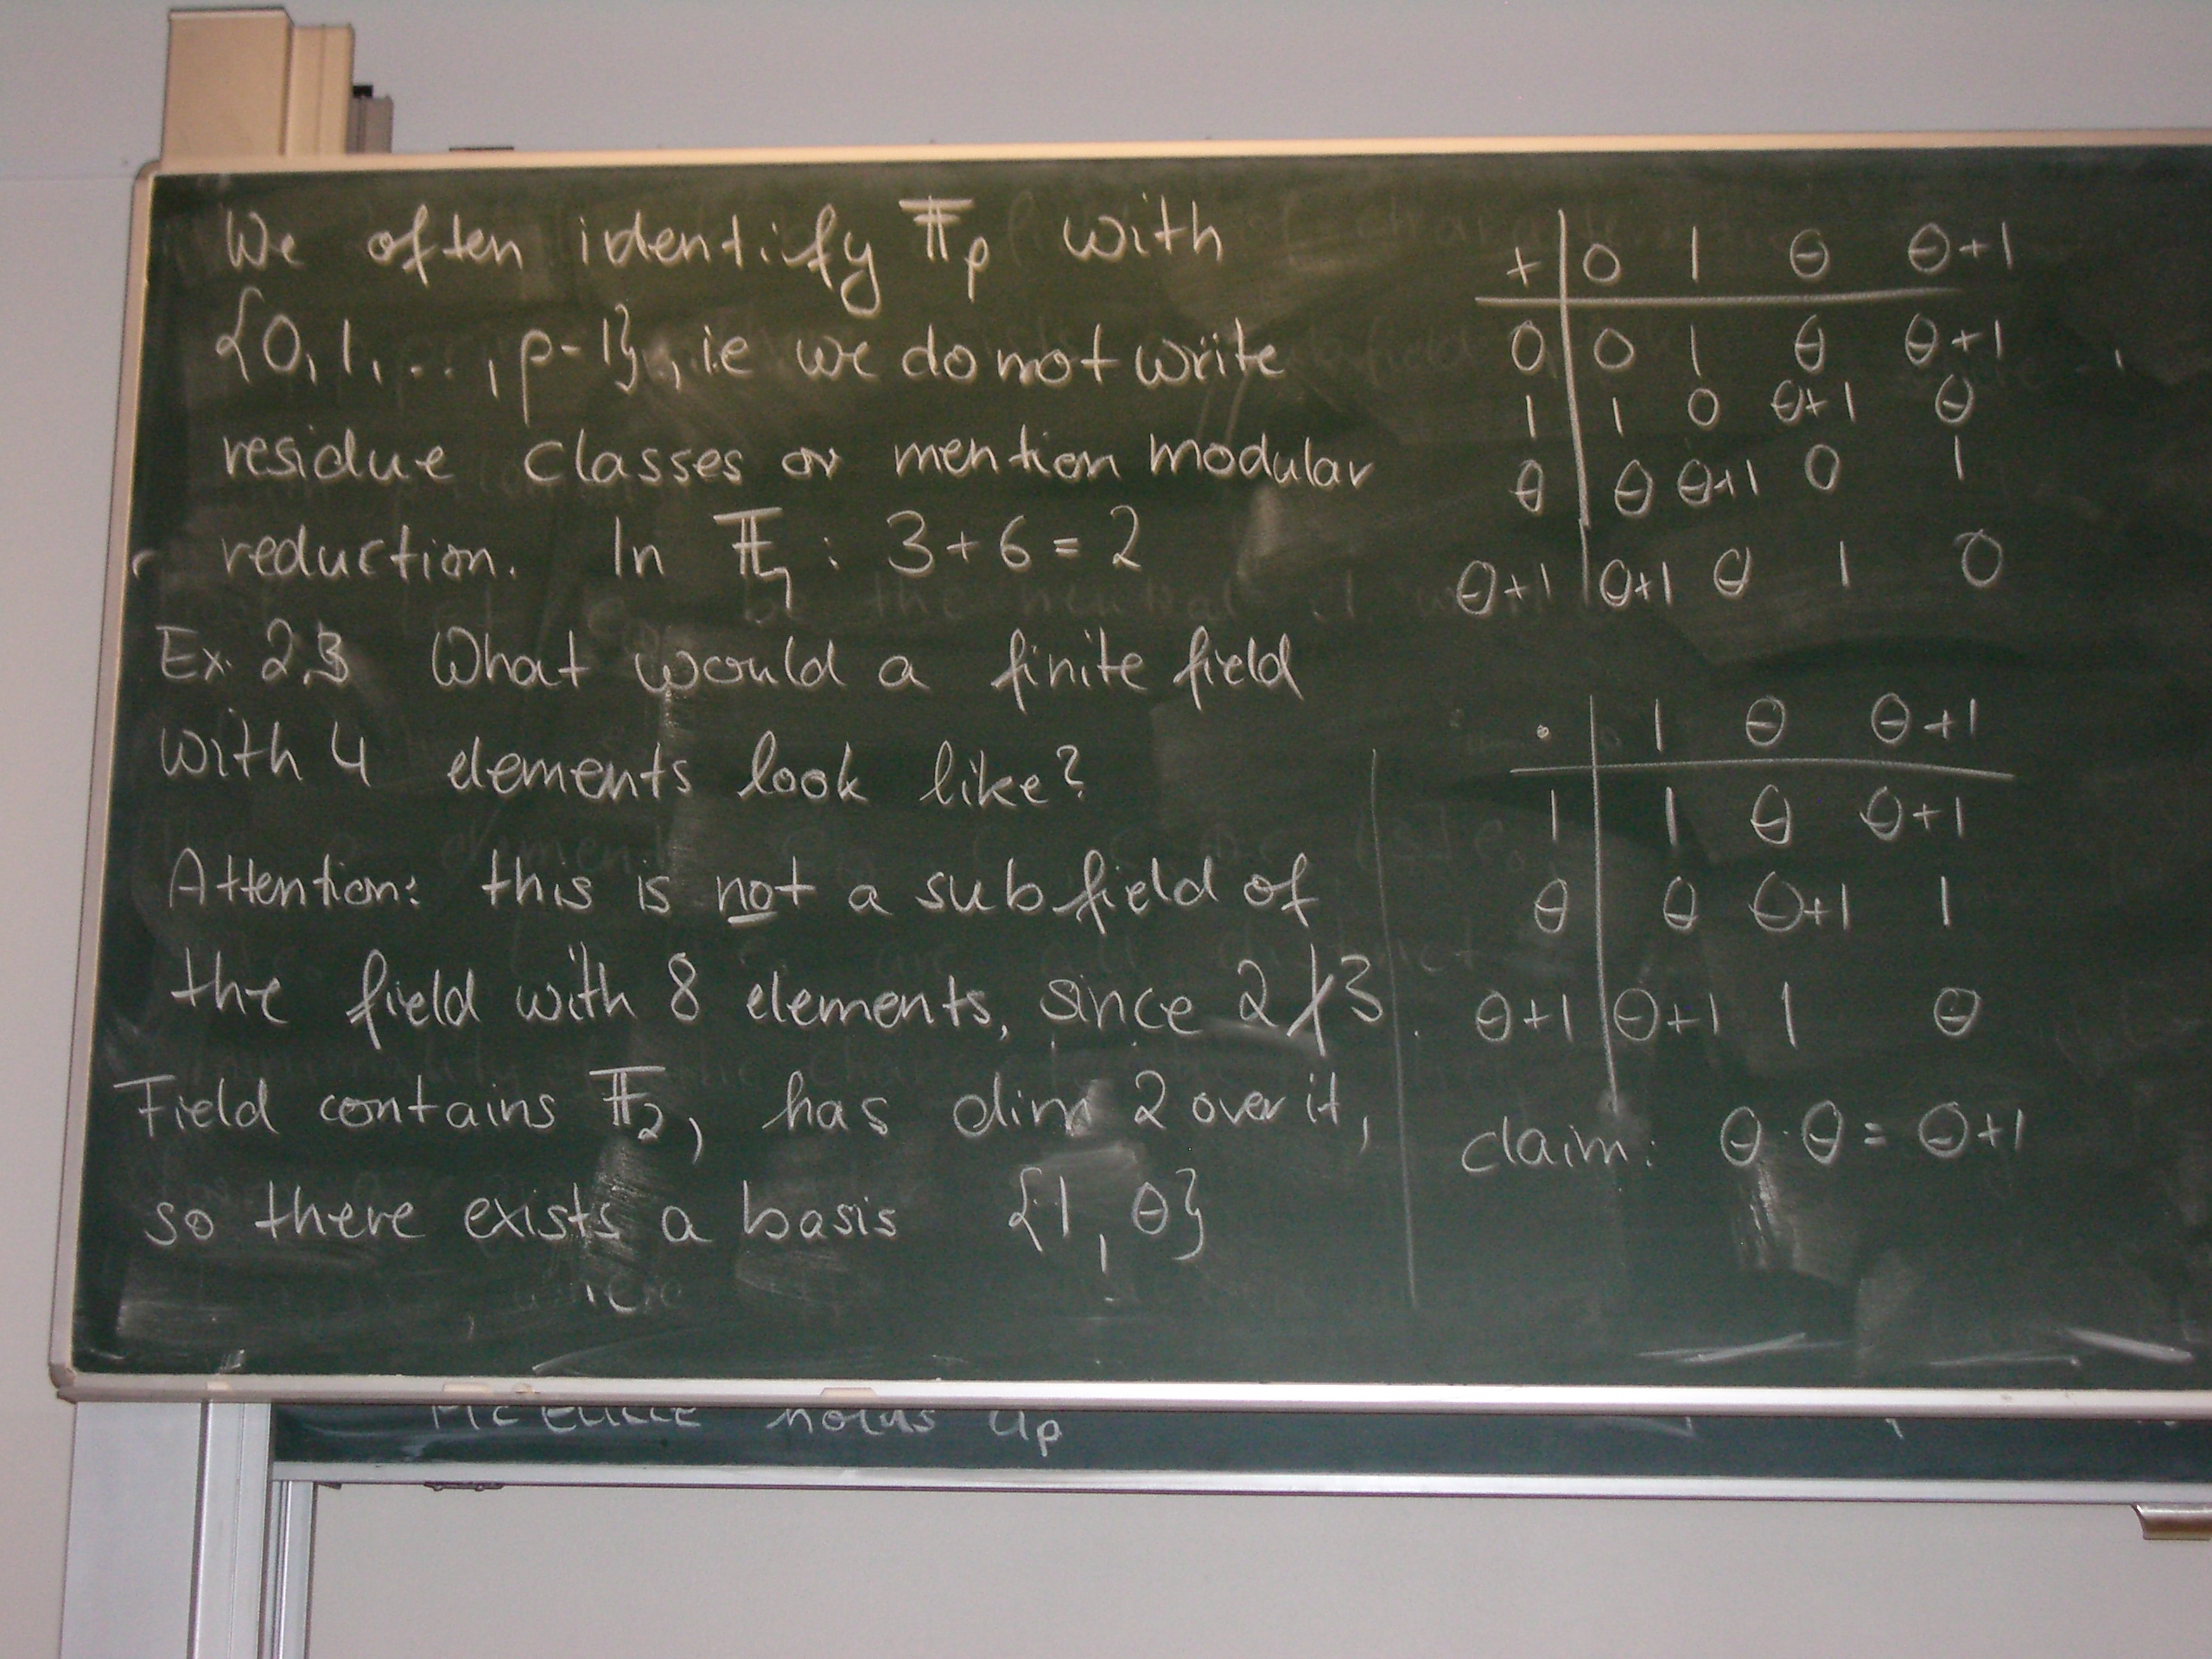 We often identify 𝔽p with
{0, 1, ..., p-1}, ie we do not write
residue classes or mention modular
reduction. In 𝔽7 : 3+6 = 2
Ex. 2.3 What would a finite field
with 4 elements look like?
Attention: this is not a subfield of
the field with 8 elements, since 2∤3.
Field contains 𝔽2, has dim 2 over it,
so there exists a basis {1, θ}
+ | 0 1 θ θ+1
0 | 0 1 θ θ+1
1 | 1 0 θ+1 θ
θ | θ θ+1 0 1
θ+1 | θ+1 θ 1 0
· | 1 θ θ+1
1 | 1 θ θ+1
θ | θ θ+1 1
θ+1 | θ+1 1 θ
claim: θ·θ = θ+1
holds up